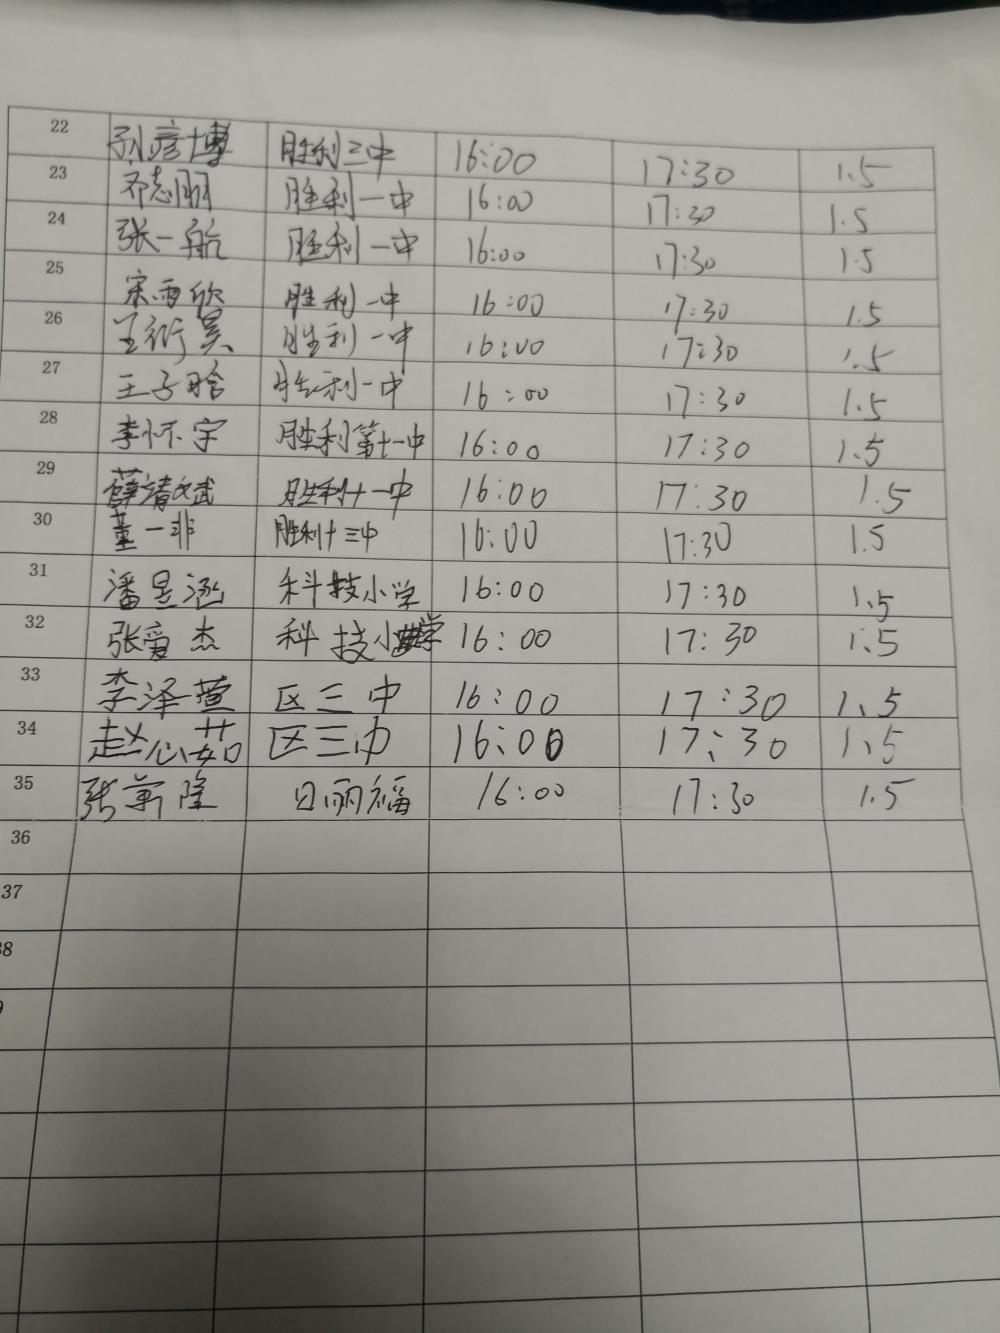 22 孙彦博 胜利三中 16:00 17:30 1.5
23 邓志刚 胜利一中 16:00 17:30 1.5
24 张一航 胜利一中 16:00 17:30 1.5
25 宋雨欣 胜利一中 16:00 17:30 1.5
26 王衍昊 胜利一中 16:00 17:30 1.5
27 王子晗 胜利一中 16:00 17:30 1.5
28 李怀宇 胜利第十一中 16:00 17:30 1.5
29 薛靖斌 胜利十一中 16:00 17:30 1.5
30 董一非 胜利十三中 16:00 17:30 1.5
31 潘昱涵 科技小学 16:00 17:30 1.5
32 张爱杰 科技小学 16:00 17:30 1.5
33 李泽萱 区三中 16:00 17:30 1.5
34 赵心茹 区三中 16:00 17:30 1.5
35 张新隆 日丽福 16:00 17:30 1.5
36
37
38
9